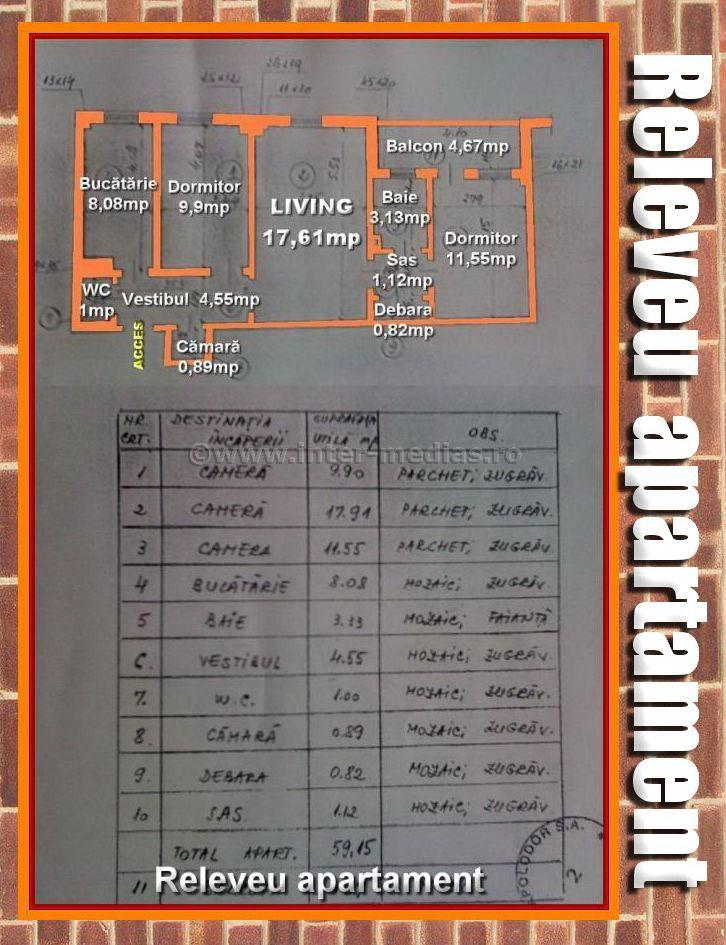 Releveu apartament
13x14
25x121
28x19
11x10
45x20
Balcon 4,67mp
4.10
16x21
Bucătărie
8,08mp
Dormitor
9,9mp
LIVING
17,61mp
5.55
Baie
3,13mp
279
Dormitor
11,55mp
Sas
1,12mp
WC
1mp
Vestibul 4,55mp
Debara
0,82mp
ACCES
Cămară
0,89mp
NR. CRT. DESTINAȚIA ÎNCAPERII SUPRAFAȚA UTILĂ mp OBS.
©www.inter-medias.ro
1 CAMERĂ 9.90 PARCHET; ZUGRĂV.
2 CAMERĂ 17.91 PARCHET; ZUGRĂV.
3 CAMERA 11.55 PARCHET; ZUGRĂV.
4 BUCĂTĂRIE 8.08 MOZAIC; ZUGRĂV.
5 BAIE 3.33 MOZAIC; FAIANȚĂ
6. VESTIBUL 4.55 MOZAIC; ZUGRĂV.
7. W.C. 1.00 MOZAIC; ZUGRĂV.
8. CĂMARĂ 0.89 MOZAIC; ZUGRĂV.
9. DEBARA 0.82 MOZAIC; ZUGRĂV.
10 SAS 1.12 MOZAIC; ZUGRĂV.
TOTAL APART. 59,15
11
POLODOR S.A.
2
Releveu apartament